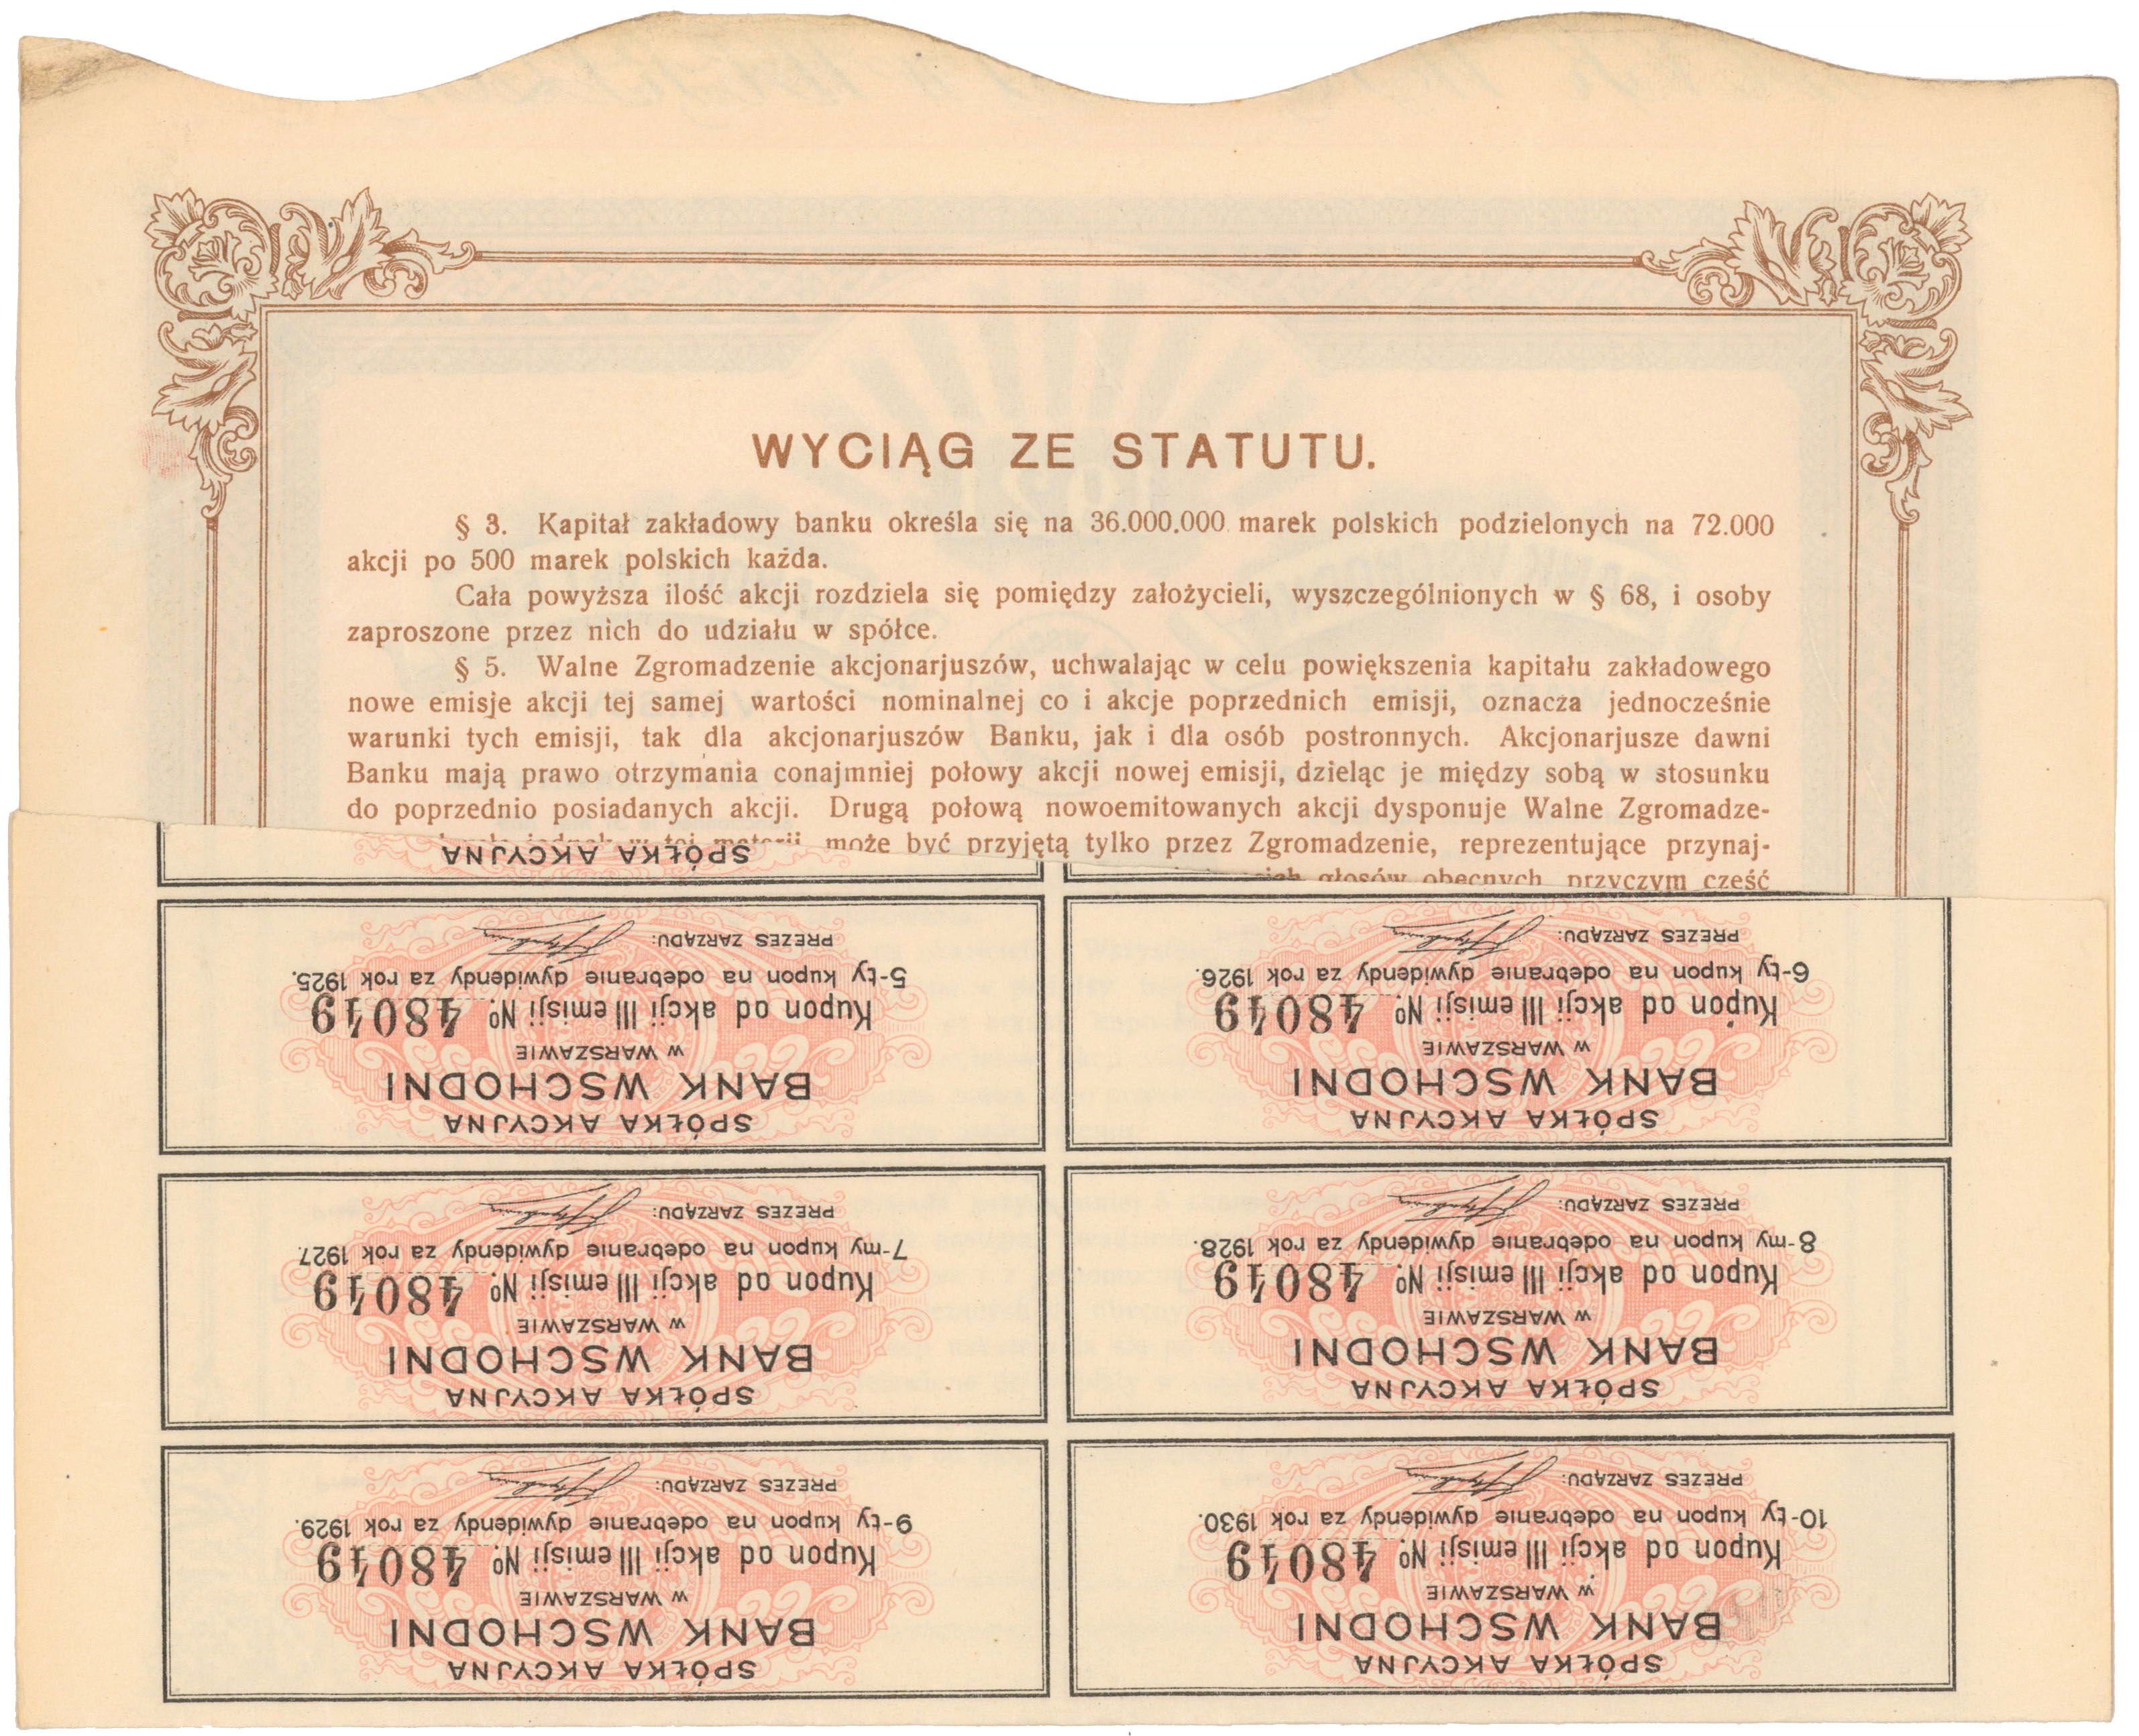 WYCIĄG ZE STATUTU.
§ 3. Kapitał zakładowy banku określa się na 36.000.000 marek polskich podzielonych na 72.000
akcji po 500 marek polskich każda.
Cała powyższa ilość akcji rozdziela się pomiędzy założycieli, wyszczególnionych w § 68, i osoby
zaproszone przez nich do udziału w spółce.
§ 5. Walne Zgromadzenie akcjonarjuszów, uchwalając w celu powiększenia kapitału zakładowego
nowe emisje akcji tej samej wartości nominalnej co i akcje poprzednich emisji, oznacza jednocześnie
warunki tych emisji, tak dla akcjonarjuszów Banku, jak i dla osób postronnych. Akcjonarjusze dawni
Banku mają prawo otrzymania conajmniej połowy akcji nowej emisji, dzieląc je między sobą w stosunku
do poprzednio posiadanych akcji. Drugą połową nowoemitowanych akcji dysponuje Walne Zgromadze-
jednak w tej materji może być przyjętą tylko przez Zgromadzenie, reprezentujące przynaj-
głosów obecnych przyczym cześć
SPÓŁKA AKCYJNA
SPÓŁKA AKCYJNA
BANK WSCHODNI
W WARSZAWIE
Kupon od akcji III emisji № 48019
10-ty kupon na odebranie dywidendy za rok 1930.
PREZES ZARZĄDU:
SPÓŁKA AKCYJNA
BANK WSCHODNI
W WARSZAWIE
Kupon od akcji III emisji № 48019
9-ty kupon na odebranie dywidendy za rok 1929.
PREZES ZARZĄDU:
SPÓŁKA AKCYJNA
BANK WSCHODNI
W WARSZAWIE
Kupon od akcji III emisji № 48019
8-my kupon na odebranie dywidendy za rok 1928.
PREZES ZARZĄDU:
SPÓŁKA AKCYJNA
BANK WSCHODNI
W WARSZAWIE
Kupon od akcji III emisji № 48019
7-my kupon na odebranie dywidendy za rok 1927.
PREZES ZARZĄDU:
SPÓŁKA AKCYJNA
BANK WSCHODNI
W WARSZAWIE
Kupon od akcji III emisji № 48019
6-ty kupon na odebranie dywidendy za rok 1926.
PREZES ZARZĄDU:
SPÓŁKA AKCYJNA
BANK WSCHODNI
W WARSZAWIE
Kupon od akcji III emisji № 48019
5-ty kupon na odebranie dywidendy za rok 1925.
PREZES ZARZĄDU: